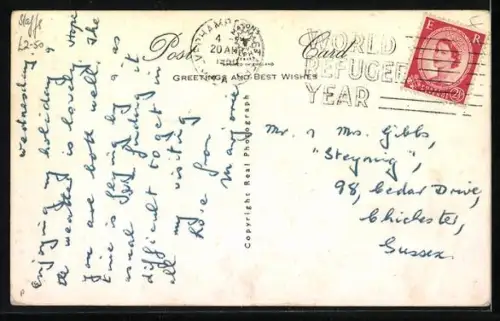 Staffs
£2-50
Post Card
GREETINGS AND BEST WISHES
4
20 AP
WORLD
REFUGEE
YEAR
E R
Copyright Real Photograph
Wednesday
enjoying my holiday &
the weather is lovely. Hope
you are both well. The
time is flying by as
usual & finding it
difficult to get in
all my visiting
Love from
Marjorie
Mr. & Mrs. Gibbs,
"Steyning",
98, Cedar Drive,
Chichester,
Sussex.